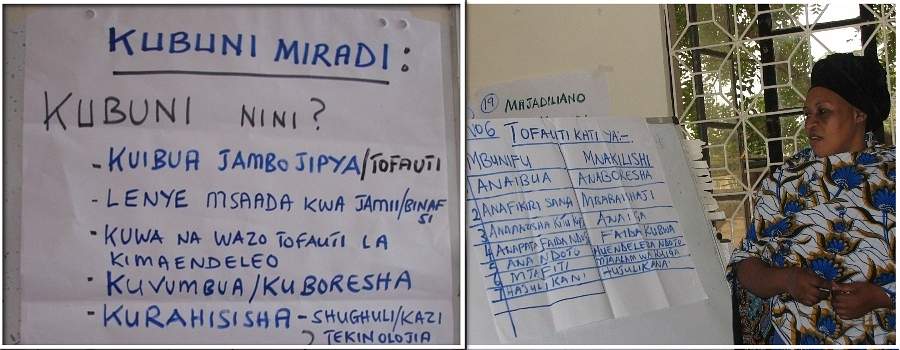 KUBUNI MIRADI:
KUBUNI NINI?
- KUIBUA JAMBO JIPYA/TOFAUTI
- LENYE MSAADA KWA JAMII/BINAFSI
- KUWA NA WAZO TOFAUTI LA
KIMAENDELEO
- KUVUMBUA/KUBORESHA
- KURAHISISHA - SHUGHULI/KAZI
TEKINOLOJIA
19 MAJADILIANO
TOFAUTI KATI YA:-
MBUNIFU MNAKILISHI
1 ANAIBUA ANABORESHA
2 ANAFIKIRI SANA MBABAISHAJI
3 ANAIGA
4 ANAPATA FAIDA FAIDA KUBWA
5 ANA NDOTO HUENDELEZA NDOTO
6 MTAFITI
7 HASULIKANI HUSULIKANA